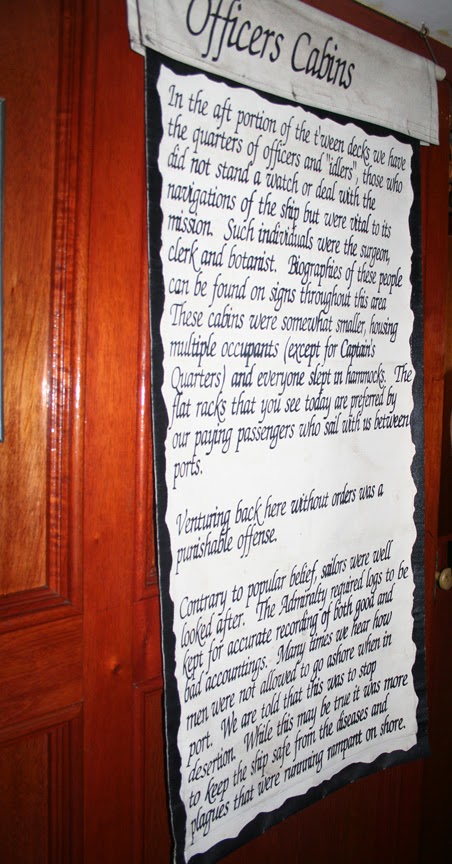 Officers Cabins
In the aft portion of the t'ween decks we have
the quarters of officers and "idlers", those who
did not stand a watch or deal with the
navigations of the ship but were vital to its
mission. Such individuals were the surgeon,
clerk and botanist. Biographies of these people
can be found on signs throughout this area
These cabins were somewhat smaller, housing
multiple occupants (except for Captain's
Quarters) and everyone slept in hammocks. The
flat racks that you see today are preferred by
our paying passengers who sail with us between
ports.
Venturing back here without orders was a
punishable offense.
Contrary to popular belief, sailors were well
looked after. The Admiralty required logs to be
kept for accurate recording of both good and
bad accountings. Many times we hear how
men were not allowed to go ashore when in
port. We are told that this was to stop
desertion. While this may be true it was more
to keep the ship safe from the diseases and
plagues that were running rampant on shore.